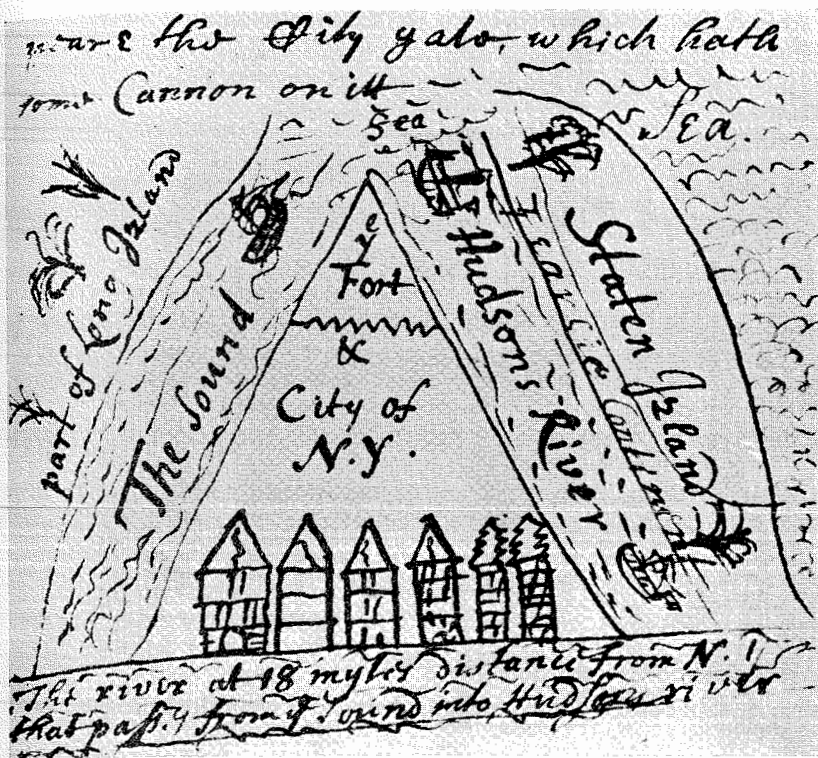 neare the City gate, which hath
some Cannon on itt
Sea
Sea.
part of Long Izland
The Sound
ye
Fort
&
City of
N.Y.
Hudsons River
Continent
Staten Izland
The river at 18 myles distance from N. Y
that pass.s from ye Sound into Hudsons river